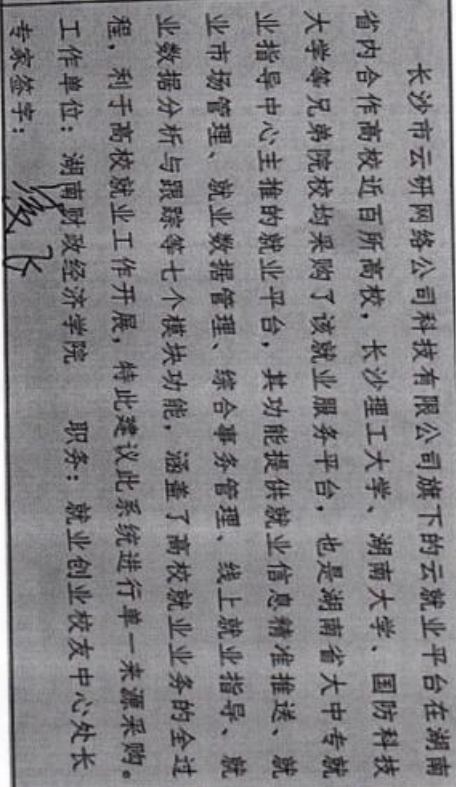 长沙市云研网络公司科技有限公司旗下的云就业平台在湖南
省内合作高校近百所高校，长沙理工大学、湖南大学、国防科技
大学等兄弟院校均采购了该就业服务平台，也是湖南省大中专就
业指导中心主推的就业平台，其功能提供就业信息精准推送、就
业市场管理、就业数据管理、综合事务管理、线上就业指导、就
业数据分析与跟踪等七个模块功能，涵盖了高校就业业务的全过
程，利于高校就业工作开展，特此建议此系统进行单一来源采购。
工作单位：湖南财政经济学院 职务：就业创业校友中心处长
专家签字：